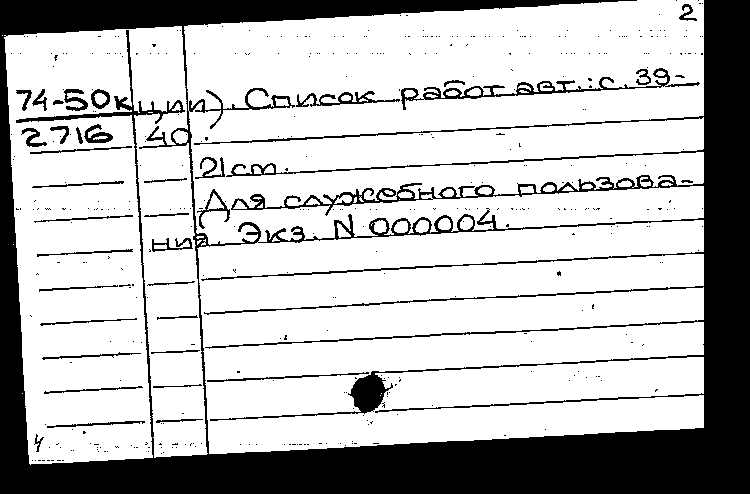 2
74-50к ции). Список работ авт.: с. 39-
2716 40.
21 cm.
Для служебного пользова-
ния. Экз. N 000004.
4